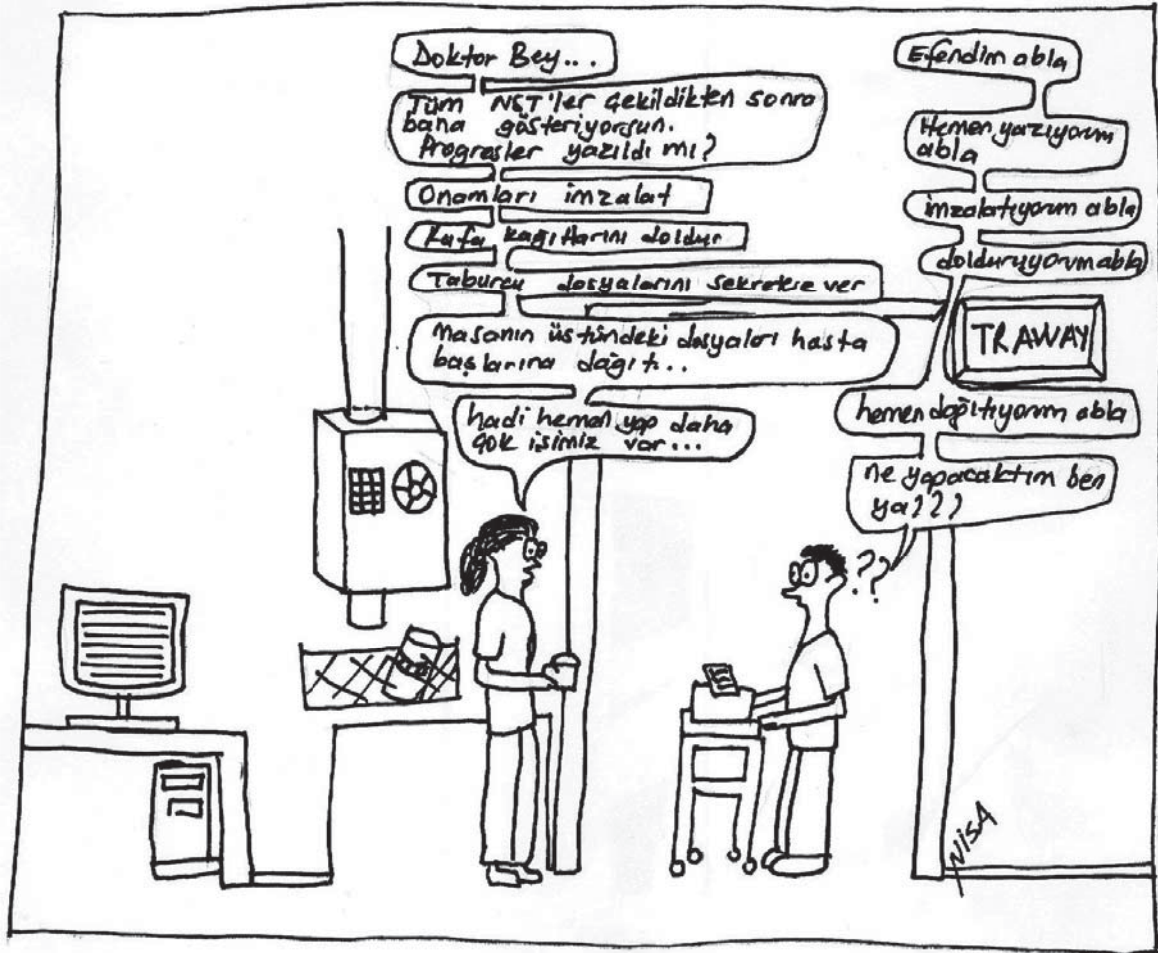 Doktor Bey...
Tüm NST'ler çekildikten sonra
bana gösteriyorsun.
Progresler yazıldı mı?
Onamları imzalat
Kafa kağıtlarını doldur
Taburcu dosyalarını sekretere ver
Masanın üstündeki dosyaları hasta
başlarına dağıt..
hadi hemen yap daha
çok işimiz var...
Efendim abla
Hemen yazıyorum
abla
imzalatıyorum abla
dolduruyorum abla
TRAWAY
hemen dağıtıyorum abla
ne yapacaktım ben
ya???
??
NİSA